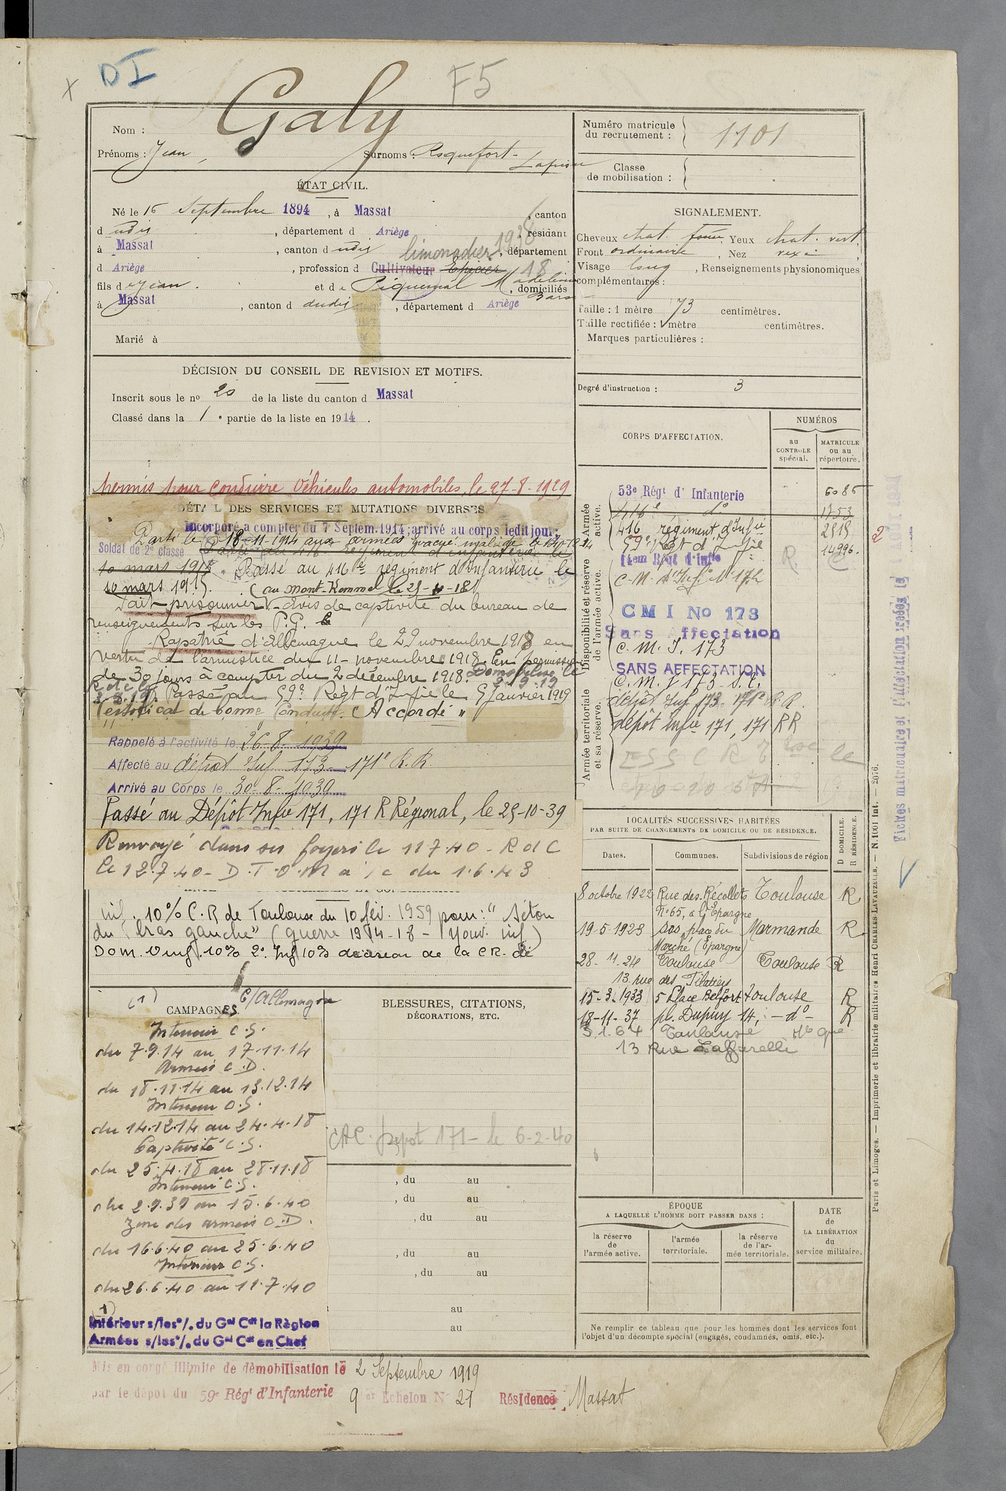 x DI F5
Nom : Galy
Prénoms : Jean, Surnoms : Roquefort-
ÉTAT CIVIL.
Né le 15 Septembre 1894, à Massat, canton
d udit, département d Ariège, résidant
à Massat, canton d udit, limonadier 1938 département
d Ariège, profession d Cultivateur Epicier 18
fils d e Jean. et d e Piquemal Madeleine domiciliés
à Massat, canton d dudit, département d Ariège
Marié à
DÉCISION DU CONSEIL DE REVISION ET MOTIFS.
Inscrit sous le no 20 de la liste du canton d Massat
Classé dans la 1e partie de la liste en 1914.
Permis pour conduire Véhicules automobiles, le 27-8-1929
DÉTAIL DES SERVICES ET MUTATIONS DIVERSES
Incorporé à compter du 7 Septem. 1914, arrivé au corps ledit jour,
Soldat de 2e classe
Parti le 18-11-1914 aux armées évacué malade le
Passé au 416e régiment d'infanterie le
10 mars 1915 Passé au 416e régiment d'Infanterie le
10 mars 1915. (au Mont-Kemmel le 25-4-18)
Fait prisonnier - avis de captivité du bureau de
renseignements sur les P.G.
Rapatrié d'Allemagne le 29 novembre 1918 en
vertu de l'armistice du 11 novembre 1918. En permission
de 30 jours à compter du 2 décembre 1918. Démobilisé le
2.9.19 Passé au 59e Régt d'Infie le 9 Janvier 1919
Certificat de bonne Conduite "Accordé"
Rappelé à l'activité le 26.8.1939
Affecté au dépôt Inf 173 171e R.R
Arrivé au Corps le 30-8-1939
Passé au Dépôt Infie 171, 171 R Régional, le 25-10-39
Renvoyé dans ses foyers le 11 7 40 - R d C
le 12.7.40 - D.T.O.M à/c du 1.6.43
inf. 10% C.R de Toulouse du 10 fév. 1959 pour : "
du bras gauche" (guerre 1914-18 -
décision de la CR. de
CAMPAGNES
(1) C/Allemagne
Intérieur C.S.
du 7.9.14 au 17.11.14
Armées C.D.
du 18.11.14 au 13.12.14
Intérieur C.S.
du 14.12.14 au 24.4.18
Captivité C.S.
du 25.4.18 au 28.11.18
Intérieur C.S.
du 2.9.39 au 15.6.40
Zone des armées C.D.
du 16.6.40 au 25.6.40
Intérieur C.S.
du 26.6.40 au 11.7.40
(1)
Intérieur s/les o/. du Gal Ct la Région
Armées s/les o/. du Gal Ct en Chef
BLESSURES, CITATIONS,
DÉCORATIONS, ETC.
CAC. Dépot 171 - le 6-2-40
, du au
, du au
, du au
, du au
, du au
au
au
Mis en congé illimité de démobilisation le 2 Septembre 1919
par le dépôt du 59e Régt d'Infanterie 9 er Echelon No 27 Résidence Massat
Numéro matricule
du recrutement : 1101
Classe
de mobilisation :
SIGNALEMENT.
Cheveux chat. foncé, Yeux chat. vert
Front ordinaire, Nez
Visage long, Renseignements physionomiques
complémentaires :
Taille : 1 mètre 73 centimètres.
Taille rectifiée : 1 mètre centimètres.
Marques particulières :
Degré d'instruction : 3
CORPS D'AFFECTATION.
NUMÉROS
AU CONTRÔLE spécial.
MATRICULE OU AU répertoire.
Armée active.
53e Régt d' Infanterie 6085
416e do 1753
416e régiment d'Infie
59e Rgt d'Infie
14em Rgt d'Infie R
C.M. d'Infie No 172
Disponibilité et réserve de l'armée active.
CMI No 173
Sans Affectation
C.M.I. 173
SANS AFFECTATION
Armée territoriale et sa réserve.
C.M.I 173 - S.C.
dépôt Inf 173 171e R.R.
dépôt Infie 171, 171 RR
2
LOCALITÉS SUCCESSIVES HABITÉES
PAR SUITE DE CHANGEMENTS DE DOMICILE OU DE RÉSIDENCE.
D DOMICILE. R RÉSIDENCE.
Dates. Communes. Subdivisions de région
8 octobre 1922 Rue des Récollets Toulouse R
No 65, à l'Epargne
19-5-1923 place du Marmande R
Marché (Epargne)
28-4-24 Toulouse Toulouse R
13 rue des Filatiers
15-3-1933 5 Place Belfort Toulouse R
13-11-37 pl. Dupuy 14, - do - R
5.1.64 Toulouse Hte Gne
13 Rue Caffarelli
ÉPOQUE
A LAQUELLE L'HOMME DOIT PASSER DANS :
la réserve de l'armée active.
l'armée territoriale.
la réserve de l'armée territoriale.
DATE DE LA LIBÉRATION du service militaire.
Ne remplir ce tableau que pour les hommes dont les services font
l'objet d'un décompte spécial (engagés, condamnés, omis, etc.).
Paris et Limoges. — Imprimerie et librairie militaires Henri CHARLES-LAVAUZELLE. — N. 1001 Int. — 2076.